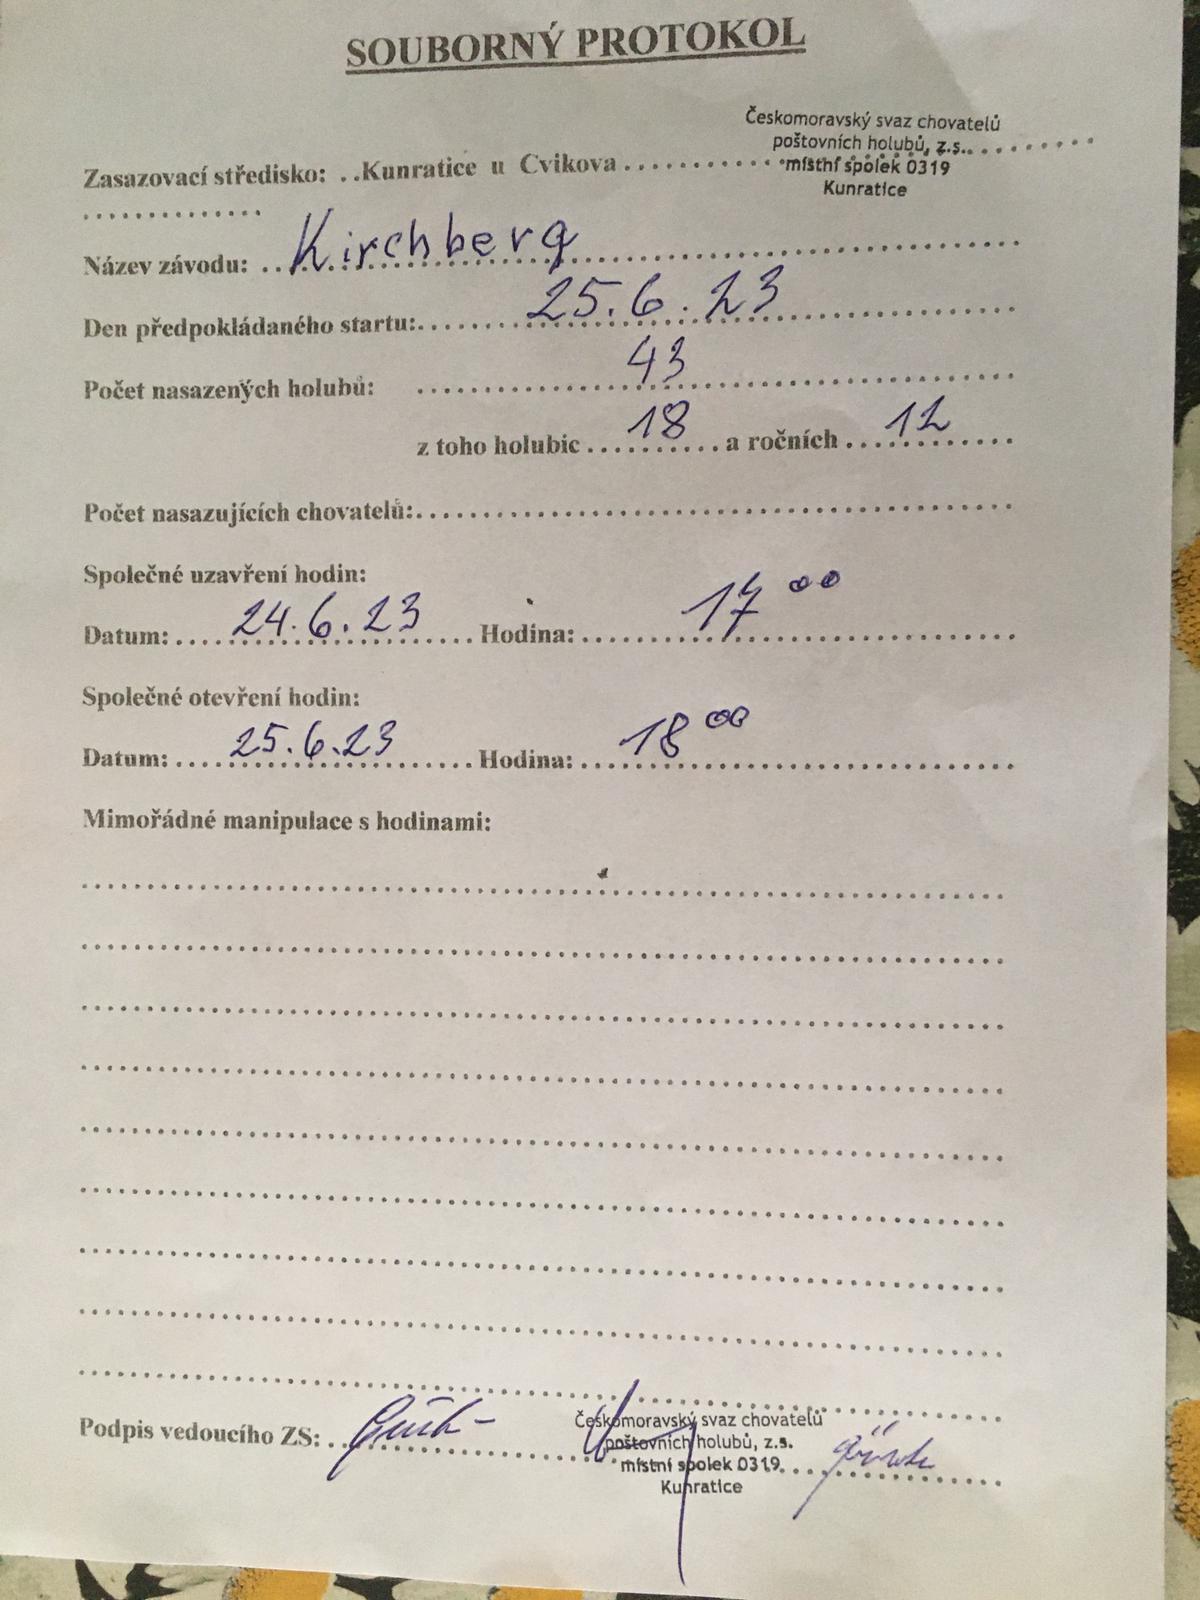 SOUBORNÝ PROTOKOL
Českomoravský svaz chovatelů
poštovních holubů, z.s.
místní spolek 0319
Kunratice
Zasazovací středisko: ..Kunratice u Cvikova
Název závodu: Kirchberg
Den předpokládaného startu: 25.6.23
Počet nasazených holubů: 43
z toho holubic 18 a ročních 12
Počet nasazujících chovatelů:
Společné uzavření hodin:
Datum: 24.6.23 Hodina: 17 00
Společné otevření hodin:
Datum: 25.6.23 Hodina: 18 00
Mimořádné manipulace s hodinami:
Podpis vedoucího ZS:
Českomoravský svaz chovatelů
poštovních holubů, z.s.
místní spolek 0319
Kunratice